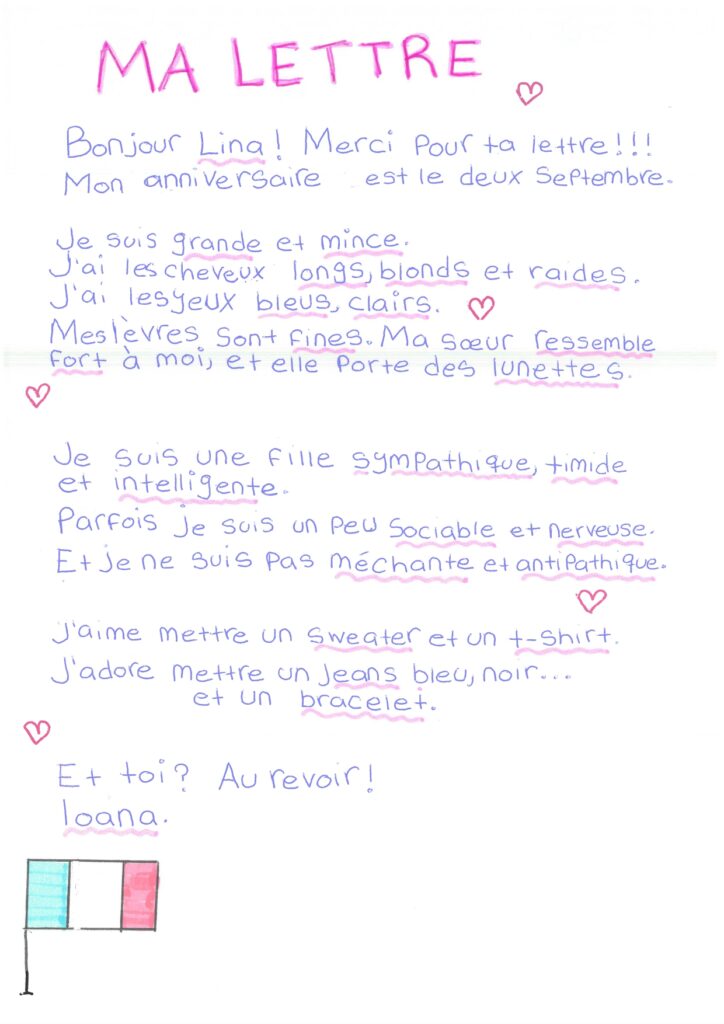 MA LETTRE
Bonjour Lina! Merci pour ta lettre!!!
Mon anniversaire est le deux septembre.
Je suis grande et mince.
J'ai les cheveux longs, blonds et raides.
J'ai les yeux bleus, clairs.
Mes lèvres sont fines. Ma sœur ressemble
fort à moi, et elle porte des lunettes.
Je suis une fille sympathique, timide
et intelligente.
Parfois je suis un peu sociable et nerveuse.
Et je ne suis pas méchante et antipathique.
J'aime mettre un sweater et un t-shirt.
J'adore mettre un jeans bleu, noir...
et un bracelet.
Et toi? Au revoir!
Ioana.